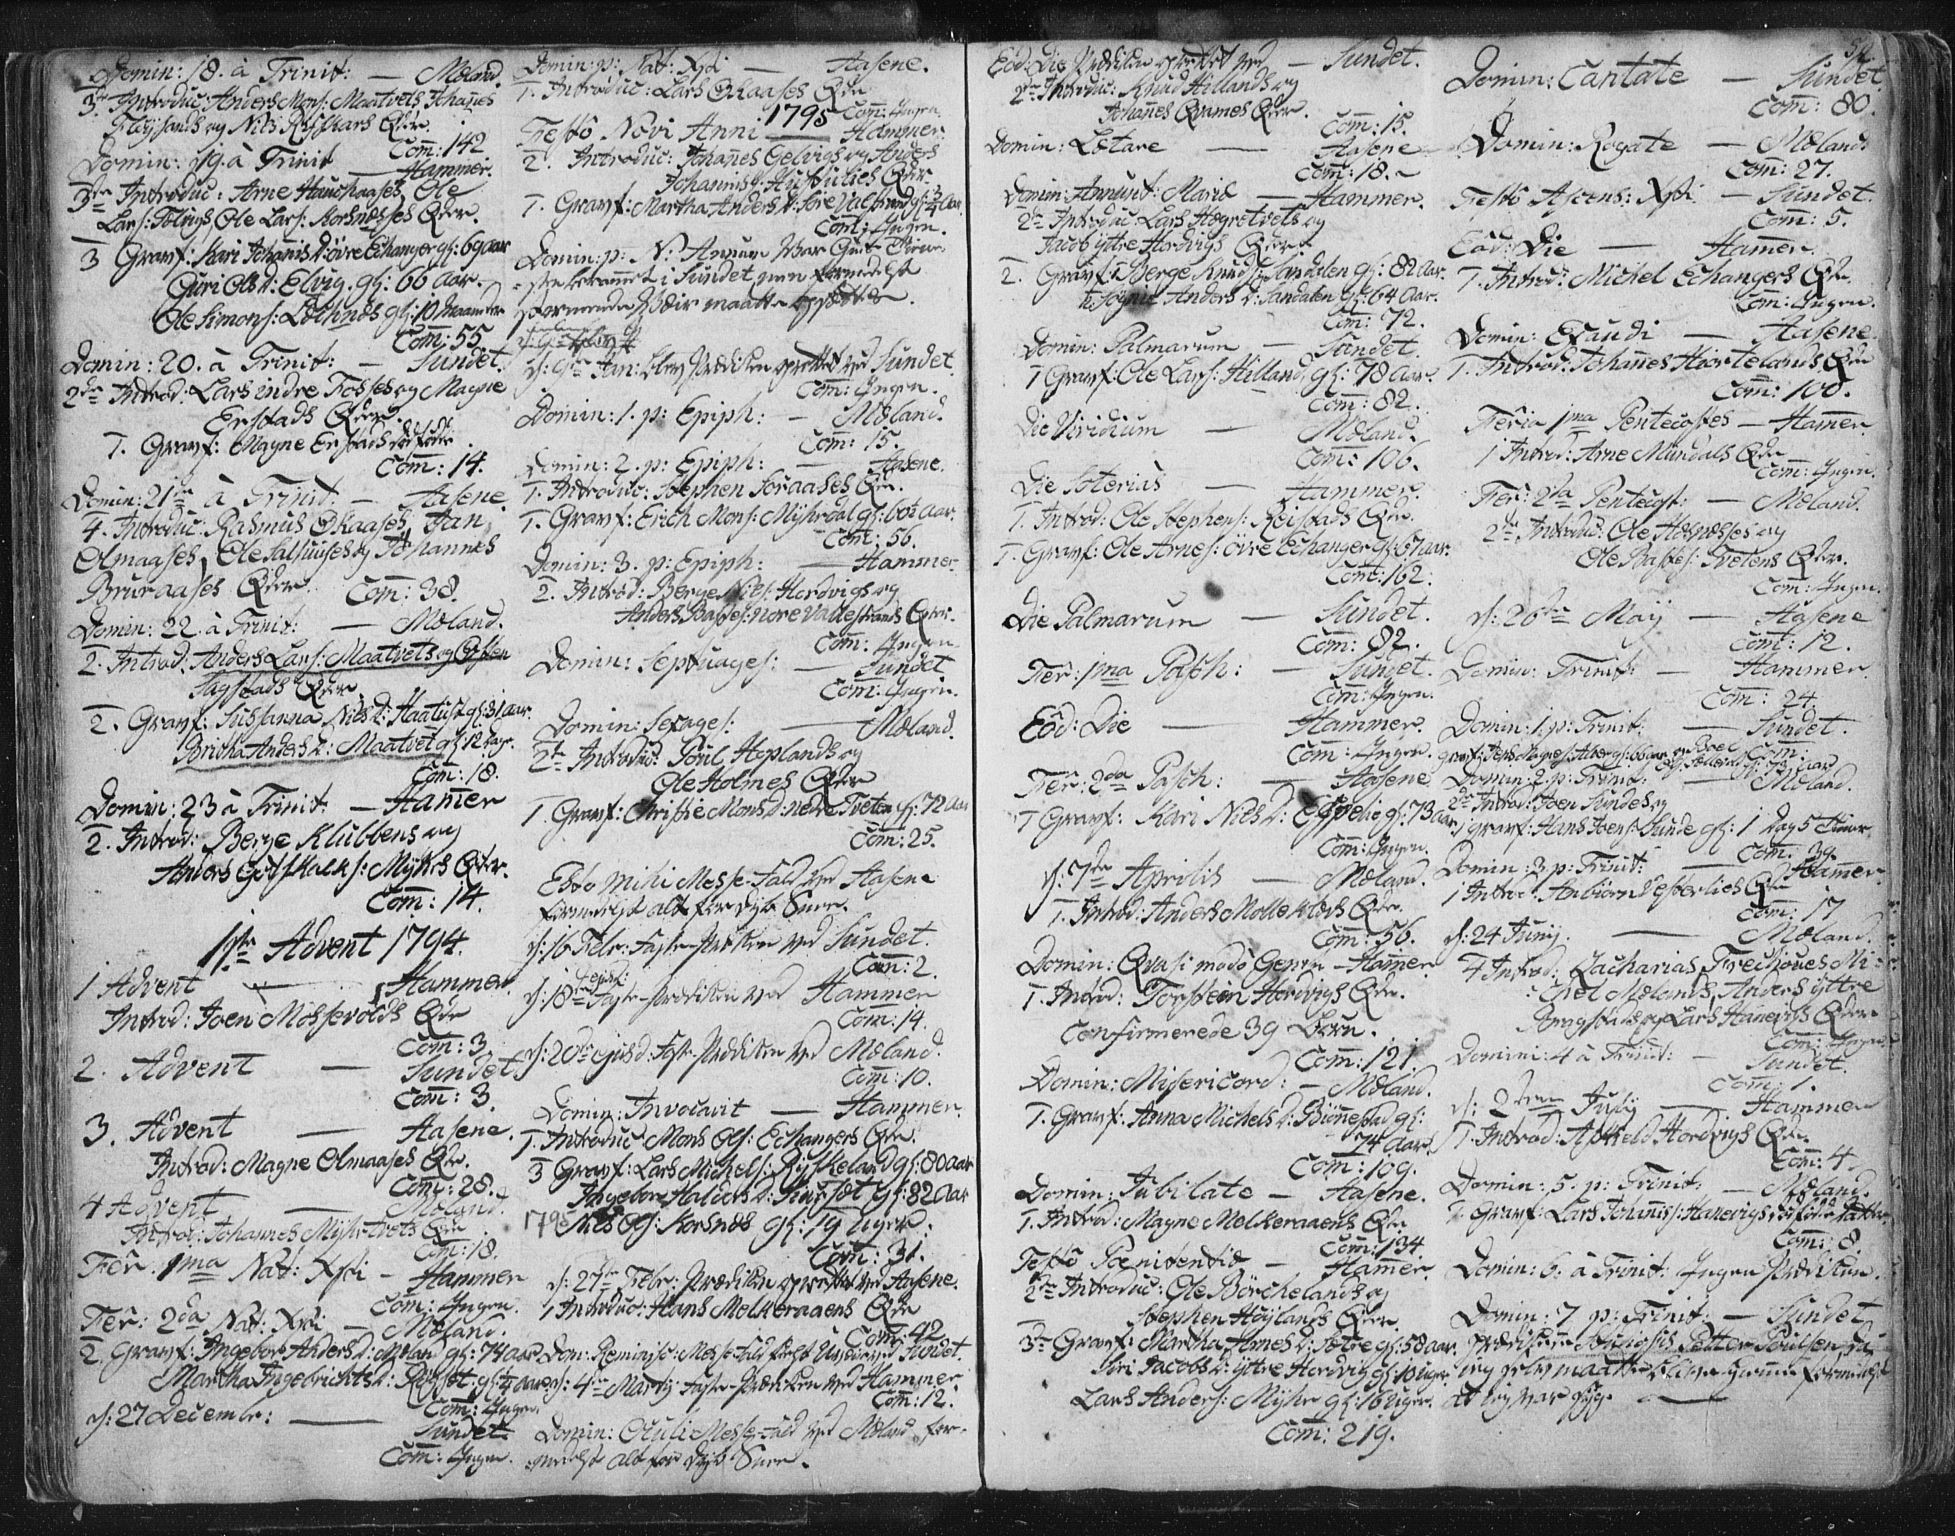 Domin: 18. à Trinit: — Møland.
3de Introduc: Anders Mons: Maatvets, Johañes
Fløysands og Nils Røsskars Qvr.
Com̄: 142
Domin: 19. à Trinit — Hammer.
3de Introduc: Arne Hauchaases, Ole
Lars: Tolngs, Ole Lars: Korsnæsses Qvr.
3 Gravf: Kari Johañisd: øvre Echanger gl: 69 aar
Guri Olsd: Elvig, gl: 66 aar.
Ole Simons: Løthnes gl: 10 Maaneder
Com̄: 55
Domin: 20. à Trinit: — Sundet.
2de Introd: Lars indre Tosses og Magne
Erstads Qvr.
1. Gravf: Magne Erstads dødfødt
Com̄: 14.
Domin: 21de à Trinit: — Aasene
4. Introduc: Rasmus Økaases, Jan
Olmaases, Ole Salhuuses og Johannes
Bruraases Qvr. Com̄: 38.
Domin: 22. à Trinit: — Møland.
2. Introd: Anders Lars: Maatvets og
Tagstads Qvr.
2. Gravf: Sussanna Nilsd: Haatuft gl: 31 aar.
Britha Andersd: Maatvet gl: 12 Dage.
Com̄: 18.
Domin: 23 à Trinit — Ham̄er
2. Introd: Berge Klubbens og
Anders Gotskalks: Myhres Qvr.
Com̄: 14.
1ste Advent 1794.
1 Advent — Hammer
Introd: Joen Mossevolds Qvr
Com̄: 3
2. Advent — Sundet.
Com̄: 3.
3. Advent — Aasene.
Introd: Magne Olmaases Qvr.
Com̄: 28.
4 Advent — Møland.
Introd: Johannes Myhrtvets Qvr
Com̄: 18.
Fer. 1ma Nat: Xsti — Hammer
Com̄: Ingen.
Fer: 2da Nat: Xsti — Møland.
2. Gravf: Ingebor Andersd: Møland gl: 74 aar
Martha Ingebrichtsd:
Com̄: Ingen.
d: 27 Decembr: — Sundet
Com̄: Ingen.
Domin: p: Nat: Xsti — Aasene.
1. Introduc: Lars Økaases Qvr
Com̄: Ingen.
1795
Festo Novi Anni — Hammer.
2. Introduc: Johañes Gelvigs og Anders
Johañis: Hustulies Qvr
1. Gravf: Martha Andersd:
Com̄: Ingen.
Domin: p: N: Annum var Guds Tiene-
ste bekañet i Sundet, men formedelst
stormende Veir maatte opsættes.
blev Prædiken prettet ved Sundet.
Com̄: Ingen.
Domin: 1. p: Epiph: — Møland.
Com̄: 15.
Domin: 2. p: Epiph: — Aasene.
1. Introduc: Stephen Soraases Qvr.
1. Gravf: Erich Mons: Myhrdal gl: 60½ aar.
Com̄: 56.
Domin: 3. p: Epiph: — Hammer.
2. Introd: Berge Nils: Hordvigs og
Anders Basses: nore Vallestrands Qvr.
Com̄: Ingen
Domin: Septuages: — Sundet
Com̄: Ingen.
Domin: Sexages: — Møland.
2de Introduc: Poul Hoplands og
Ole Holmes Qvr
1 Gravf: Christie Monsd: nedre Tveten gl: 72 Aar
Com̄: 25.
Esto mihi Messe-Fald ved Aasene
formedelst alt for dyb Snee.
d: 16 Febr: Faste-Prædiken ved Sundet.
Com̄: 2.
d: 18de ejusd: Faste-Prædiken ved Hammer
Com̄: 14.
d: 20de ejusd: Faste-Prædiken ved Møland.
Com̄: 10.
Domin: Invocavit — Hammer.
1. Introduc Mons Ols: Echangers Qvr.
3 Gravf: Lars Michels: Rysskeland gl: 80 aar
Ingebor Haldorsd: gl: 82 Aar
1795 Nils Ols: Korsnes gl: 19 Uger.
Com̄: 31.
d: 27de Febr: Prædiken prettet ved Aasene.
1 Introduc: Hans Melkeraaens Qvr
Com̄: 42
Dom: Reminisc: Messe-Fald ved Sundet.
d: 4de Martij Faste-Prædiken ved Hammer.
Com̄: 12.
Domin: Oculi Messe-Fald ved Møland for-
medelst alt for dyb Snee.
Eod: Die Prædiken prettet ved — Sundet.
2de Introduc: Knud Hillands og
Johañes Qvames Qvr.
Com̄: 15.
Domin: Lætare — Aasene
Com̄: 18.
Domin: Annunt: Mariæ — Hammer.
2de Introduc: Lars Hægretvets og
Jacob yttre Hordvigs Qvr.
2. Gravf: Berge Knuds: Sandalen gl: 82 Aar.
Anders d: Sandalen gl: 64 Aar.
Com̄: 72.
Domin: Palmarum — Sundet.
1 Gravf: Ole Lars: Hilland, gl: 78 Aar.
Com̄: 82.
Die Viridium — Møland.
Com̄: 106.
Die Soterias — Hammer.
1. Introd: Ole Stephens: Reistads Qvr.
1. Gravf: Ole Arnes: øvre Echanger gl: 67 aar.
Com̄: 162.
Die Palmarum — Sundet.
Com̄: 82.
Fer: 1ma Pasch: — Sundet.
Com̄: Ingen.
Eod: Die — Hammer.
Com̄: Ingen.
Fer: 2da Pasch: — Aasene
1 Gravf: Kari Nilsd: Espelie gl: 73 Aar
Com̄: Ingen.
d: 7de Aprilis — Møland.
1. Introd: Anders Mollekleos Qvr.
Com̄: 56.
Domin: Qvasi modo Geniti — Ham̄er
1. Introd: Torstein Hordvigs Qvr.
Confirmerede 39 Børn.
Com̄: 121.
Domin: Misericord: — Møland.
1. Gravf: Anna Michelsd: Bionestad gl:
74 Aar.
Com̄: 109.
Domin: Jubilate — Aasene.
1. Introd: Magne Melkeraaens Qvr
Com̄: 134
Festo Pænitentiæ — Ham̄er.
2de Introduc: Ole Børchelands og
Stephen Høylands Qvr.
3de Gravf: Martha Arnesd: Sætre gl: 58 aar.
Siri Jacobsd: yttre Hordvig gl: 10 uger
Lars Anders: Myhre gl: 16 Uger.
Com̄: 219.
Domin: Cantate — Sundet.
Com̄: 80.
Domin: Rogate — Møland.
Com̄: 27.
Festo Ascens: Xsti — Sundet.
Com̄: 5.
Eod: Die — Ham̄er.
1. Introd: Michel Echangers Qvr.
Com̄: Ingen.
Domin: Exaudi — Aasene.
1. Introd: Johañes Hiortelands Qvr
Com̄: 100.
Feria 1ma Pentecostes — Ham̄er.
1 Introd: Arne Mundals Qvr
Com̄: Ingen.
Fer: 2da Pentecost: — Møland.
2de Introduc: Ole Holmesses og
Ole Basses: Tvetens Qvr.
Com̄: Ingen.
d: 26de May — Aasene
Com̄: 12.
Domin: Trinit: — Hammer.
Com̄: 24
Domin: 1. p: Trinit: — Sundet.
Com̄:
Domin: 2. p: Trinit: — Møland.
2de Introd: Joen Sundes og
1 gravf: Hans Joens: Sunde gl: 1 Dag 5 Timer.
Com̄: 39.
Domin: 3 p: Trinit: — Ham̄er.
1 Introd: Anbiørn Vesterlies Qvr
Com̄: 17
d: 24 Junij. — Møland.
4 Introd: Zacharias Frechoues, Mi-
chel Mølands, Anders yttre
Bragstads og Lars Hanevigs Qvr
Com̄: Ingen
Domin: 4 à Trinit: — Sundet.
Com̄: 1.
d: 2den July — Hammer
1. Introd: Askield Hordvigs Qvr.
Com̄: 4
Domin: 5. p: Trinit: — Møland.
1 Gravf: Lars Johañis: Hanevigs
Com̄: 8
Domin: 6. à Trinit: Ingen Prædiken.
Domin: 7 p: Trinit: — Sundet
Petter Poulsen, da
jeg selv maatte blive hiem̄e formedelst
at jeg var syg.